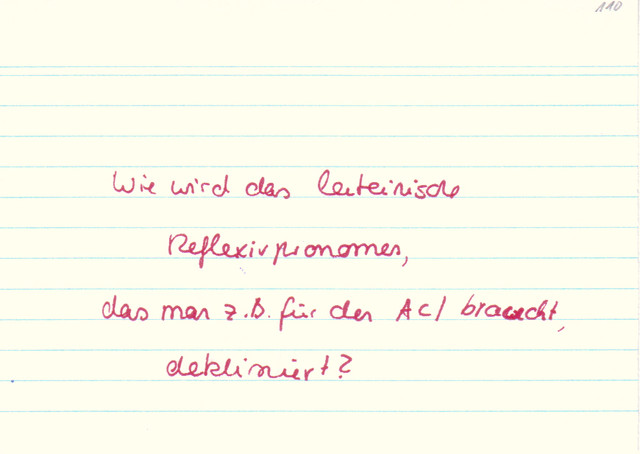 110
Wie wird das lateinische
Reflexivpronomen,
das man z.B. für den ACI braucht,
dekliniert?